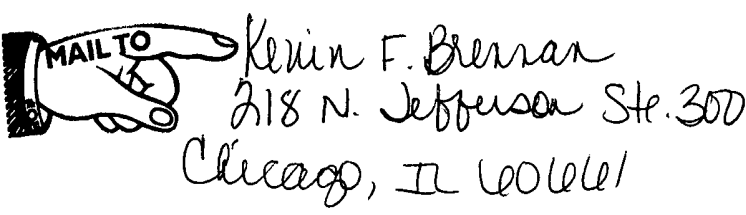 MAIL TO
Kevin F. Brennan
218 N. Jefferson Ste. 300
Chicago, IL 60661